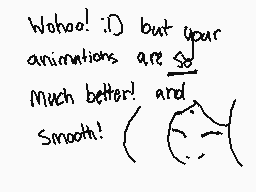 Wohoo! :D but your
animations are so
much better! and
smooth!